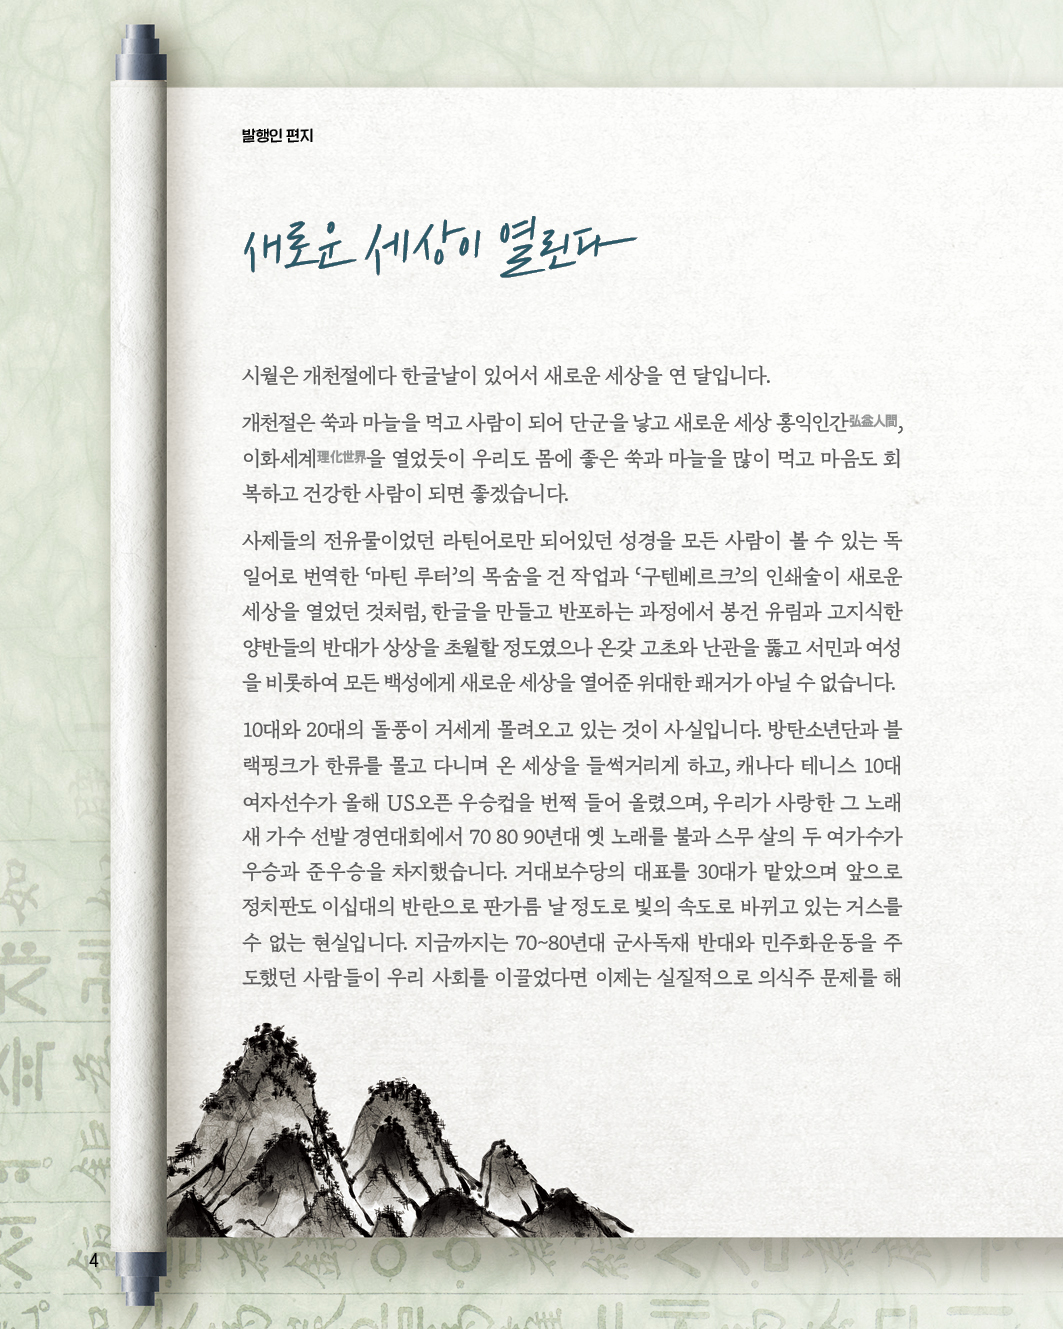 발행인 편지
새로운 세상이 열린다
시월은 개천절에다 한글날이 있어서 새로운 세상을 연 달입니다.
개천절은 쑥과 마늘을 먹고 사람이 되어 단군을 낳고 새로운 세상 홍익인간弘益人間,
이화세계理化世界을 열었듯이 우리도 몸에 좋은 쑥과 마늘을 많이 먹고 마음도 회
복하고 건강한 사람이 되면 좋겠습니다.
사제들의 전유물이었던 라틴어로만 되어있던 성경을 모든 사람이 볼 수 있는 독
일어로 번역한 ‘마틴 루터’의 목숨을 건 작업과 ‘구텐베르크’의 인쇄술이 새로운
세상을 열었던 것처럼, 한글을 만들고 반포하는 과정에서 봉건 유림과 고지식한
양반들의 반대가 상상을 초월할 정도였으나 온갖 고초와 난관을 뚫고 서민과 여성
을 비롯하여 모든 백성에게 새로운 세상을 열어준 위대한 쾌거가 아닐 수 없습니다.
10대와 20대의 돌풍이 거세게 몰려오고 있는 것이 사실입니다. 방탄소년단과 블
랙핑크가 한류를 몰고 다니며 온 세상을 들썩거리게 하고, 캐나다 테니스 10대
여자선수가 올해 US오픈 우승컵을 번쩍 들어 올렸으며, 우리가 사랑한 그 노래
새 가수 선발 경연대회에서 70 80 90년대 옛 노래를 불과 스무 살의 두 여가수가
우승과 준우승을 차지했습니다. 거대보수당의 대표를 30대가 맡았으며 앞으로
정치판도 이십대의 반란으로 판가름 날 정도로 빛의 속도로 바뀌고 있는 거스를
수 없는 현실입니다. 지금까지는 70~80년대 군사독재 반대와 민주화운동을 주
도했던 사람들이 우리 사회를 이끌었다면 이제는 실질적으로 의식주 문제를 해
4